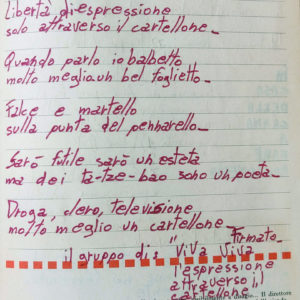 libertà di espressione
solo attraverso il cartellone_
Quando parlo io balbetto
molto meglio un bel foglietto_
Falce e martello
sulla punta del pennarello_
Sarò futile sarò un esteta
ma dei ta-tze-bao sono un poeta_
Droga, clero, televisione
molto meglio un cartellone_
Firmato
il gruppo di: "Viva Viva
l'espressione
attraverso il
cartellone
Il direttore